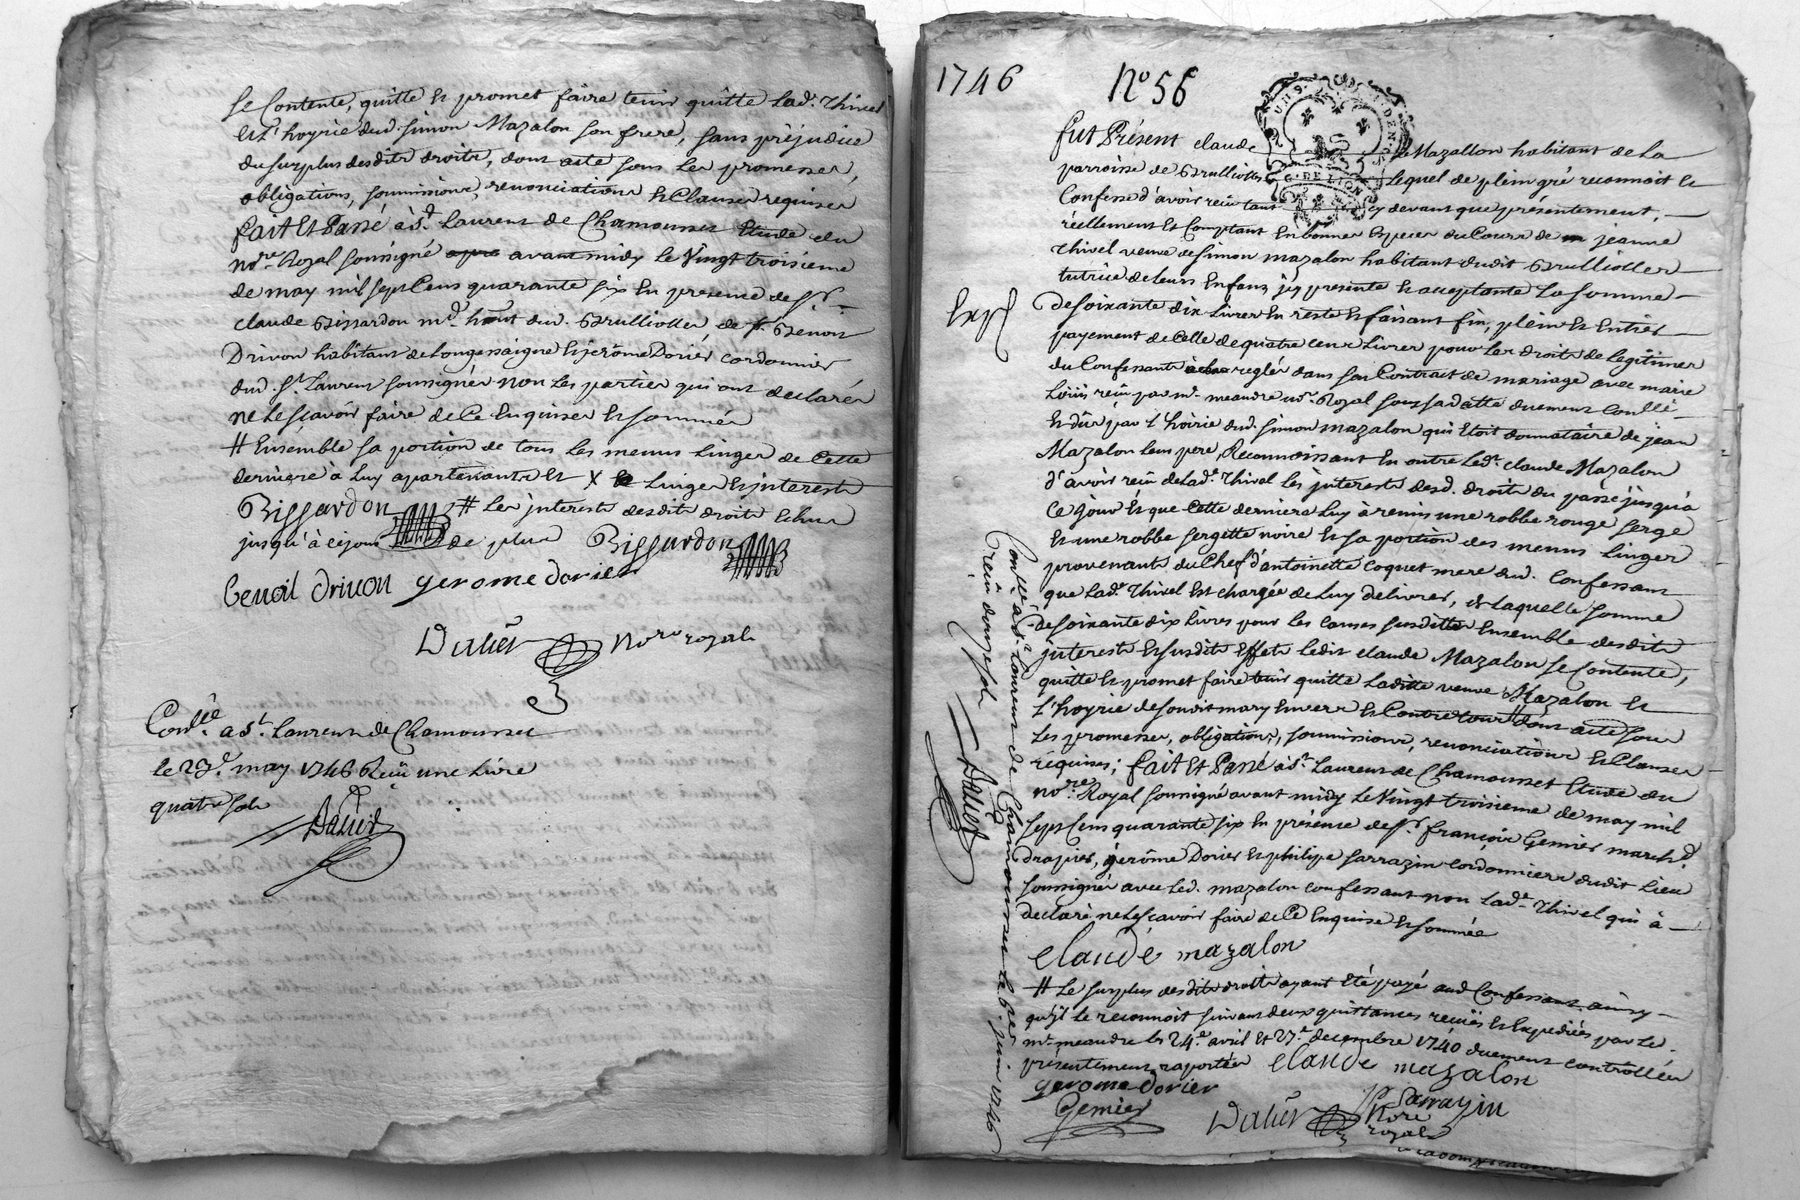 se Contente, quitte et promet faire tenir quitte lad.e Thivel
et l'hoyrie dud. simon Mazalon son frere, sans préjudice
du surplus desdits droits, dont acte sous les promesses,
obligations, soumissions, renonciations et Clauses requises
fait et Passé à S.t Laurent de Chamousset Etude du
no.re Royal soussigné avant midy le Vingt troisieme
de may mil sept Cens quarante six En presence de S.r
claude Bissardon m.d dud. Brulliolles, de s.r Benoit
Drivon habitant de Longessaigne et jerôme Dorier cordonnier
dud. S.t Laurent soussignés non les parties qui ont declaré
ne le sçavoir faire de Ce Enquises et sommées
# Ensemble sa portion de tous les menus Linges de Cette
derniere à Luy apartenants et X Linges et jnterests
Bissardon # Les jnterests desdits droits echus
jusqu'à ce jour de plus Bissardon
benoit drivon gerome dorier
Dalier No.re royal
Con.llé a S.t Laurent de Chamousset
le 23.e may 1746 Reçu une Livre
quatre sols
Dalier
1746 N.o 56
fut Présent claude Mazallon habitant de La
parroisse de Brullioles Lequel de plein gré reconnoit et
Confesse d'avoir reçu tant cy devant que présentement,
réellement et Comptant En bonnes Especes du Cours de jeanne
Thivel veuve de simon mazalon habitant dudit Brulliolles
tutrice de leurs Enfans jcy presente et acceptante La somme
Exp.é
de soixante dix Livres En reste et faisant fin, plein et Entier
payement de Celle de quatre Cens Livres pour Les droits de legitimes
du Confessant reglés dans son Contract de mariage avec marie
reçu par m.e meandre no.re Royal sous sa datte duement Con.llé
Et dûs par L'hoirie dud. simon mazalon qui Etoit donnataire de jean
Mazalon leur pere, Reconnoissant En outre led. claude Mazalon
d'avoir reçu de Lad.e Thivel les jnterests desd. droits du passé jusqu'à
Ce jour et que Cette derniere Luy à remis une robbe rouge serge
et une robbe sergette noire et sa portion des menus Linges
provenants du Chef d'antoinette Coquet mere dud. Confessant
que Lad.e Thivel Est chargée de Luy delivrer, de Laquelle somme
de soixante dix Livres pour les causes susdittes Ensemble desdits
jnterests et susdits effets Ledit claude Mazalon se Contente,
quitte et promet faire tenir quitte Laditte veuve Mazalon et
L'hoyrie de sondit mary Envers et Contre tous # dont acte sous
Les promesses, obligations, soumissions, renonciations et Clauses
réquises; fait et Passé à S.t Laurent de Chamousset Etude du
no.re Royal soussigné avant midy Le Vingt troisieme de may mil
sept Cens quarante six En présence de S.r françois Gemier march.d
drapier, gerôme Dorier et philipe sarrazin cordonniers dudit Lieu
soussignés avec Led. mazalon confessant non Lad.e Thivel qui à
declaré ne Le sçavoir faire de Ce Enquise et sommée
claude mazalon
# Le surplus desdits droits ayant Eté payé aud Confessant ainsy
qu'jl le reconnoit suivant deux quittances reçuës et Expediées par Le
m.e meandre les 24.e avril et 27.e decembre 1740 duement controllées
présentement raportées claude mazalon
gerome dorier
Gemier Sarrazin
Dalier No.re
royal
Con.llé à S.t Laurent de Chamousset Le 6.e juin 1746
reçu douze sols
Dalier